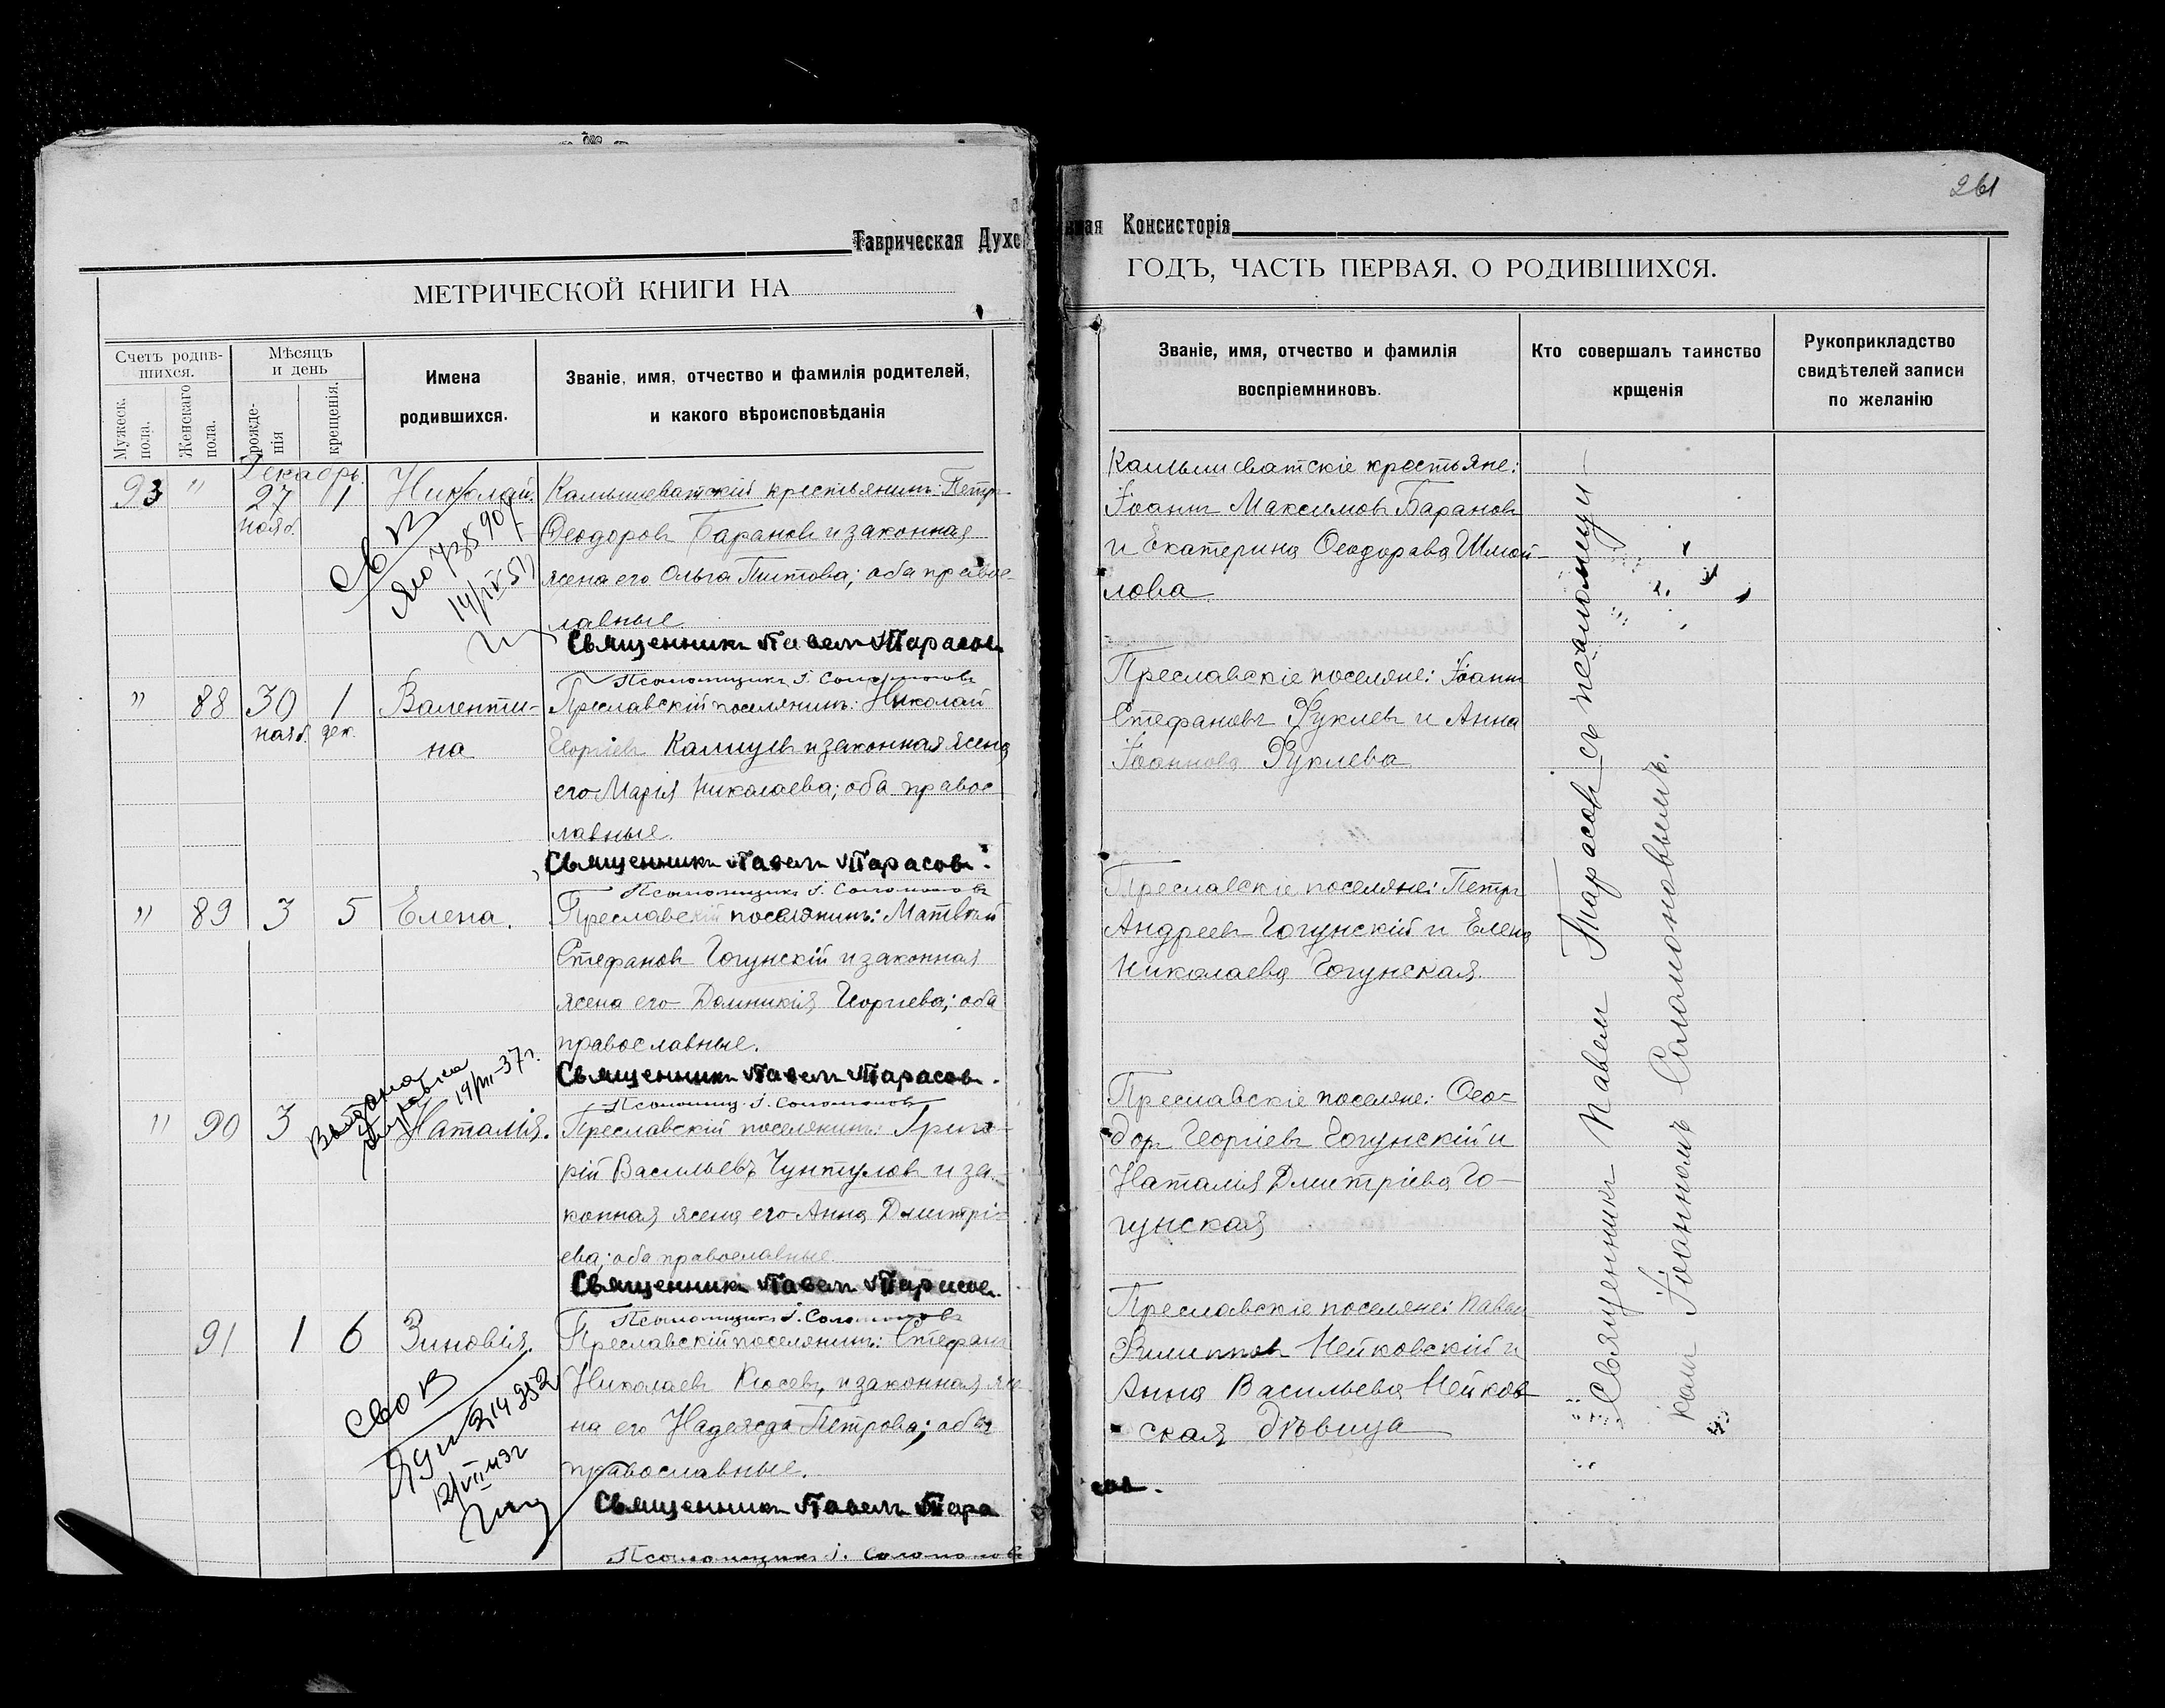 261
Таврическая Духовная Консисторія
МЕТРИЧЕСКОЙ КНИГИ НА
ГОДЪ, ЧАСТЬ ПЕРВАЯ, О РОДИВШИХСЯ.
Счетъ родив-
шихся.
Мужеск.
пола.
Женскаго
пола.
Мѣсяцъ
и день
рожде-
нія
крещенія.
Имена
родившихся.
Званіе, имя, отчество и фамилія родителей,
и какого вѣроисповѣданія
Званіе, имя, отчество и фамилія
воспріемниковъ.
Кто совершалъ таинство
крщенія
Рукоприкладство
свидѣтелей записи
по желанію
Декабрь.
93 " 27 1 Николай. Камышеватскій крестьянинъ: Петръ
нояб.
Ѳеодоровъ Барановъ и законная
жена его Ольга Титова; оба право-
славные.
Священникъ Павелъ Тарасовъ
Псаломщикъ І. Соломоновъ
Камышеватскіе крестьяне:
Іоаннъ Максимовъ Барановъ
и Екатерина Ѳеодорова
лова
14/IV 51
" 88 30 1 Валенти- Преславскій поселянинъ: Николай
нояб. дек.
на Георгіевъ и законная жена
его Марія Николаева; оба правос-
лавные.
Священникъ Павелъ Тарасовъ.
Псаломщикъ І. Соломоновъ
Преславскіе поселяне: Іоаннъ
Стефановъ Руклевъ и Анна
Іоаннова Руклева
" 89 3 5 Елена. Преславскій поселянинъ: Матвѣй
Стефановъ Гогунскій и законная
жена его Домникія Георгіева; оба
православные.
Священникъ Павелъ Тарасовъ.
Псаломщ. І. Соломоновъ
Преславскіе поселяне: Петръ
Андреевъ Гогунскій и Елена
Николаева Гогунская.
Выдана
справка
19/VII-37 г.
" 90 3 Наталія. Преславскій поселянинъ: Григо-
рій Васильевъ Чунтуловъ и за-
конная жена его Анна Дмитрі-
ева; оба православные.
Священникъ Павелъ Тарасовъ.
Псаломщикъ І. Соломоновъ
Преславскіе поселяне: Ѳео-
доръ Георгіевъ Гогунскій и
Наталія Дмитріева Го-
гунская
91 1 6 Зиновія. Преславскій поселянинъ: Стефанъ
Николаевъ Кюсевъ, и законная же-
на его Надежда Петрова; оба
православные.
Священникъ Павелъ Тарасов.
Псаломщикъ І. Соломоновъ
Преславскіе поселяне: Павелъ
Филипповъ Нейковскій и
Анна Васильева Нейков-
ская дѣвица
Священникъ Павелъ Тарасовъ съ псаломщи-
комъ Іоанномъ Соломоновымъ.